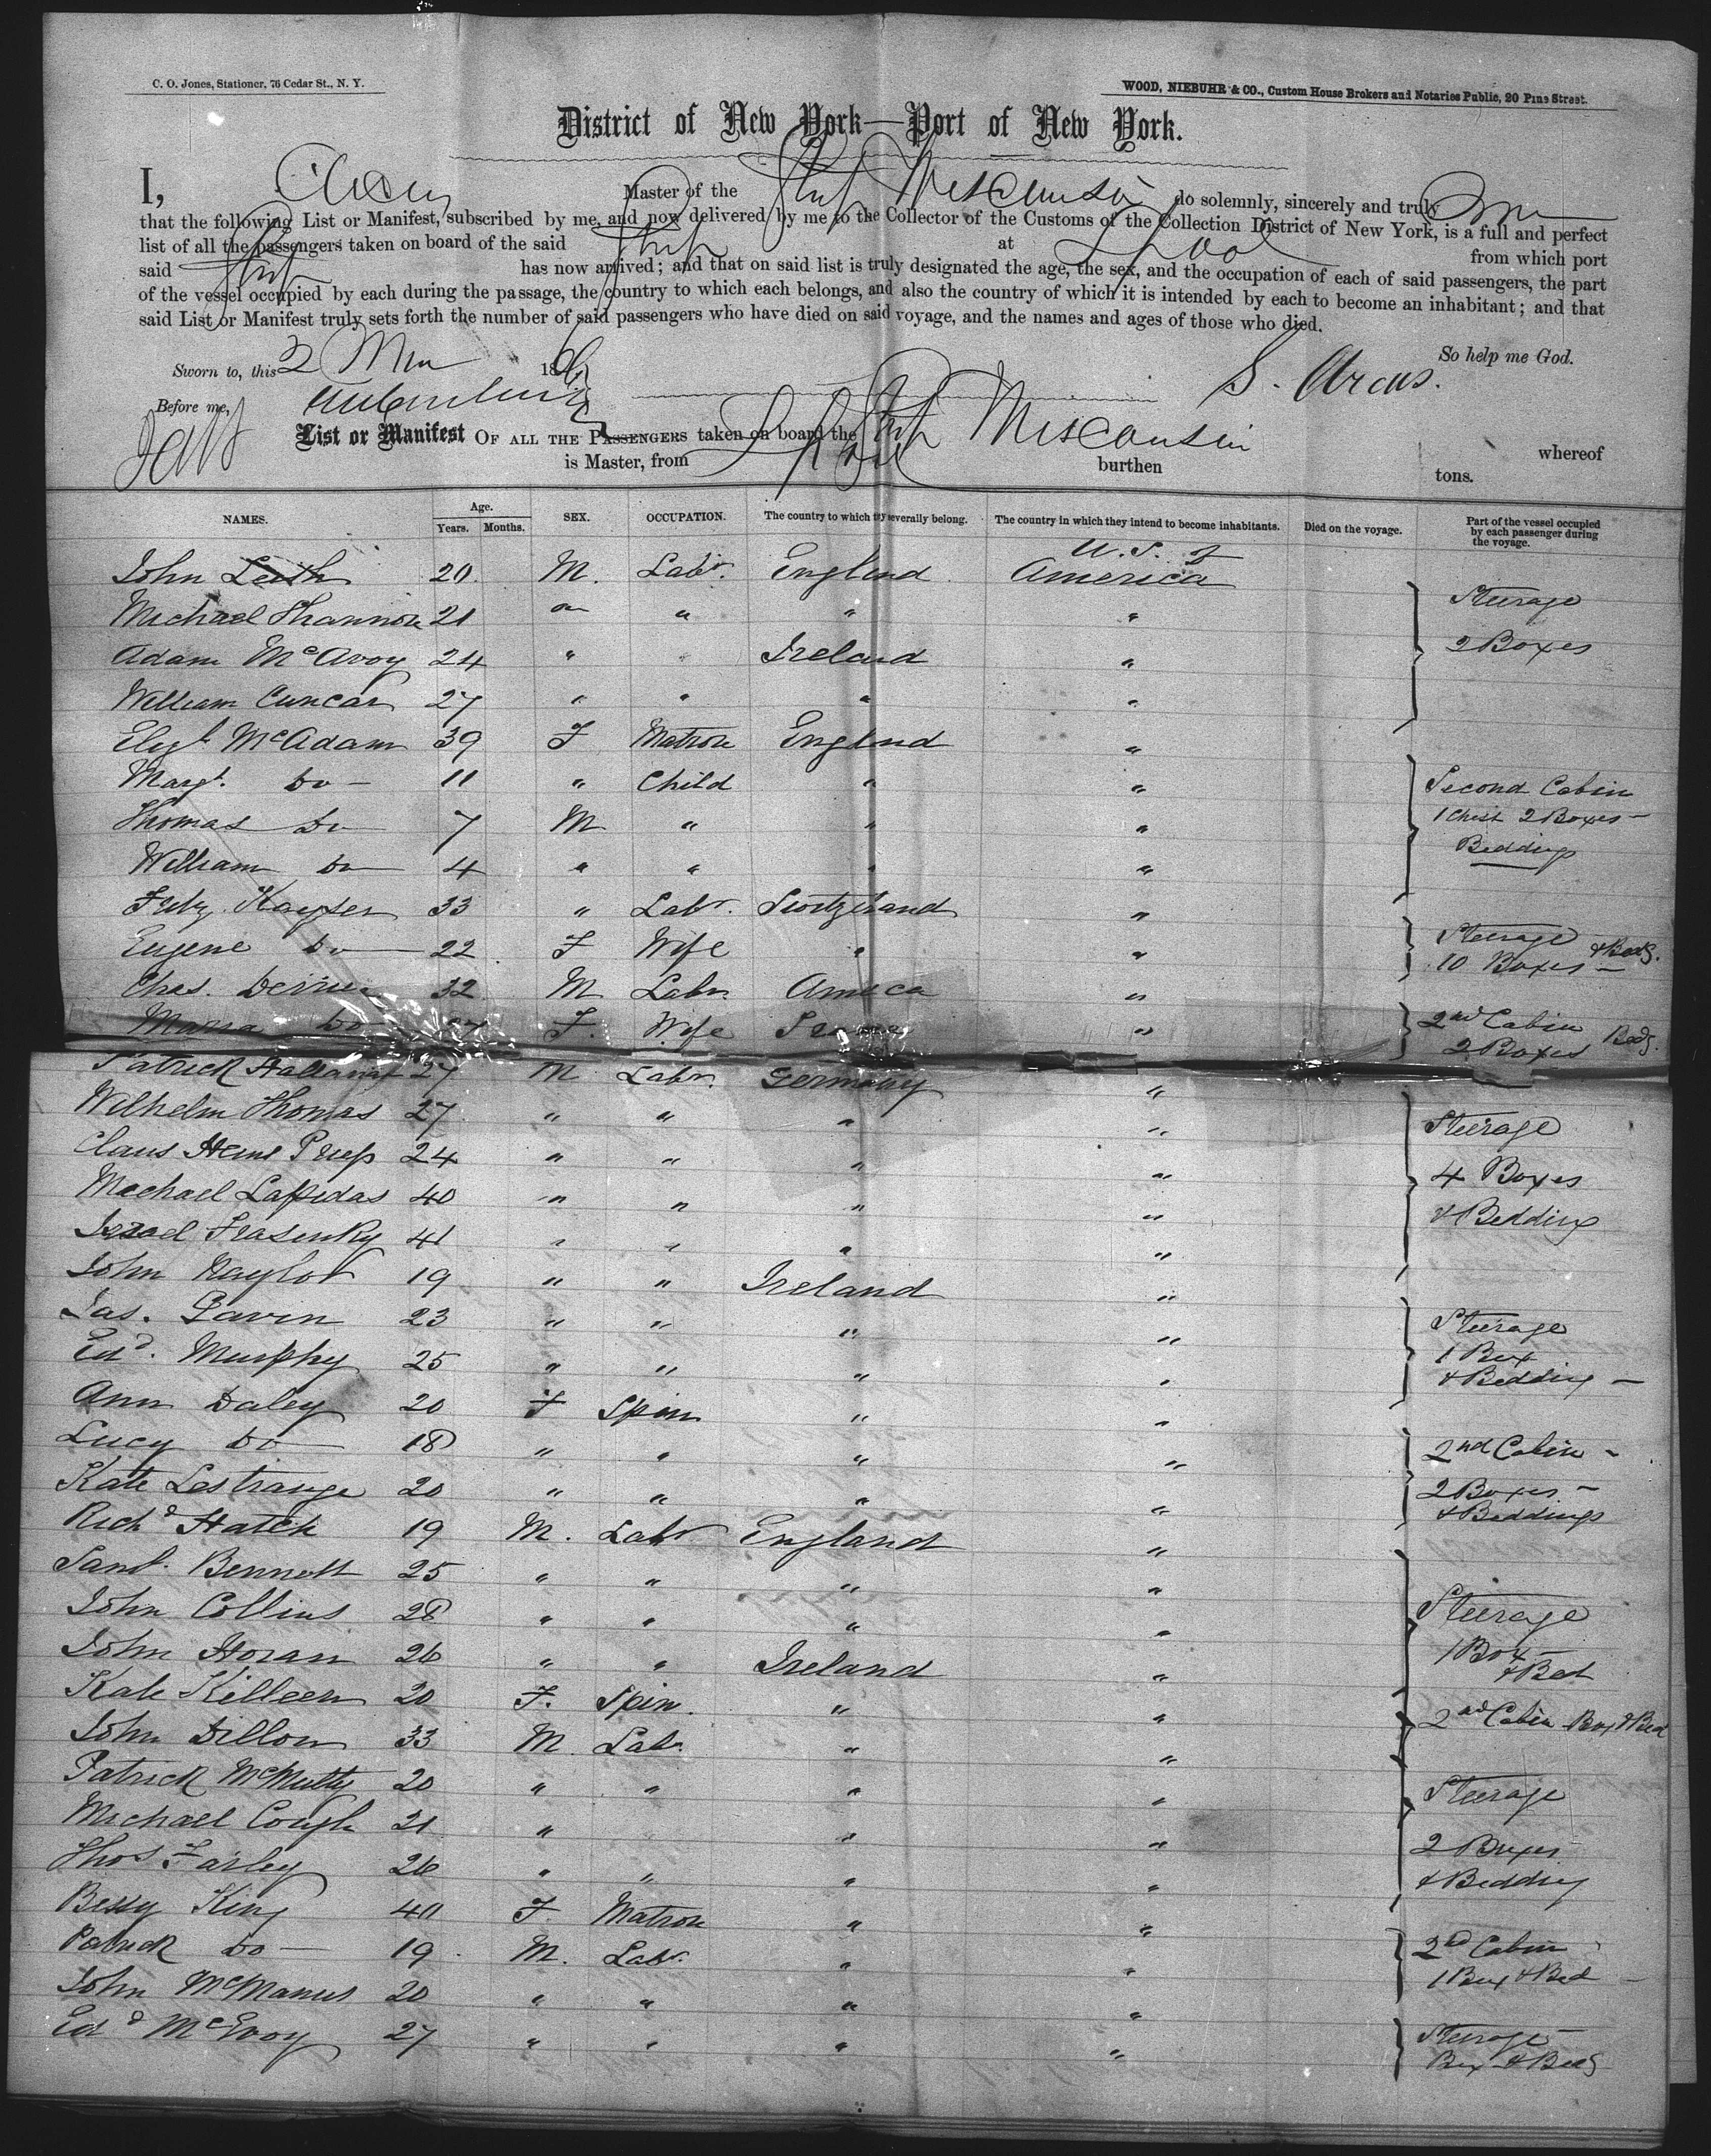 C. O. Jones, Stationer, 76 Cedar St., N. Y.
WOOD, NIEBUHR & CO., Custom House Brokers and Notaries Public, 20 Pine Street.
District of New York—Port of New York.
I, Master of the Ship Wisconsin do solemnly, sincerely and truly
that the following List or Manifest, subscribed by me, and now delivered by me to the Collector of the Customs of the Collection District of New York, is a full and perfect
list of all the passengers taken on board of the said Ship at Lpool from which port
said Ship has now arrived; and that on said list is truly designated the age, the sex, and the occupation of each of said passengers, the part
of the vessel occupied by each during the passage, the country to which each belongs, and also the country of which it is intended by each to become an inhabitant; and that
said List or Manifest truly sets forth the number of said passengers who have died on said voyage, and the names and ages of those who died.
So help me God.
Sworn to, this 2 186
S. Arcus.
Before me,
List or Manifest OF ALL THE PASSENGERS taken on board the Ship Wisconsin whereof
is Master, from Lpool burthen tons.
NAMES. Age. Years. Months. SEX. OCCUPATION. The country to which they severally belong. The country in which they intend to become inhabitants. Died on the voyage. Part of the vessel occupied by each passenger during the voyage.
John Leish 20 M. Labr. England U.S. of America
Michael Shannon 21 " " " " Steerage
Adam McAvoy 24 " " Ireland " 2 Boxes
William Cuncar 27 " " " "
Elizt. McAdam 39 F Matron England "
Margt. Do 11 " Child " " Second Cabin
Thomas Do 7 M " " " 1 Chest 2 Boxes
William Do 4 " " " " Bedding
Kayser 33 " Labr. Switzerland "
Eugene Do 22 F Wife " " Steerage
Chas. 32 M Labr. America " 10 Boxes & Bedg.
Maria Do F. Wife " 2nd Cabin 2 Boxes Bedg.
Patrick 27 M Labr. Germany "
Wilhelm Thomas 27 " " " " Steerage
Claus 24 " " " " 4 Boxes
Michael Lapidas 40 " " " " & Bedding
41 " " " "
John Naylor 19 " " Ireland "
Jas. Gavin 23 " " " " Steerage
Edd. Murphy 25 " " " " 1 Box & Bedding
Ann Daley 20 F Spin " "
Lucy Do 18 " " " " 2nd Cabin
Kate Lestrange 20 " " " " 2 Boxes & Beddings
Richd Hatch 19 M. Labr England "
Saml. Bennett 25 " " " "
John Collins 28 " " " " Steerage
John Horan 26 " " Ireland " 1 Box & Bed
Kate Killeen 20 F. Spin. " " 2nd Cabin Box & Bed
John Dillon 33 M. Labr. " "
Patrick McNulty 20 " " " " Steerage
Michael Cough 21 " " " 2 Boxes
Thos Farley 26 " " " " & Bedding
Bessy King 40 F. Matron " "
Patrick Do 19 M. Labr. " " 2nd Cabin 1 Box & Bed
John McManus 20 " " " "
Edd McEvoy 27 " " " " Steerage Box & Bedg